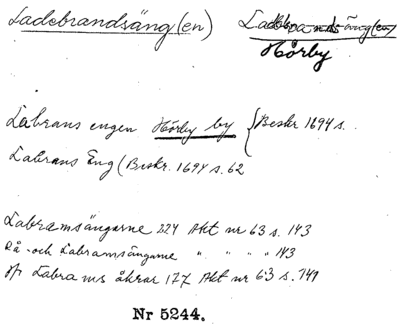 Ladebrandsäng(en)
Ladebrandsäng(en)
Hörby
Labrans engen Hörby by { Beskr 1694 s.
Labrans Eng (Beskr. 1694 s. 62
Labramsängarne 224 Akt nr 63 s. 143
Rå- och Labramsängarne " " " " 143
Labrams åkrar 177 Akt nr 63 s. 149
Nr 5244.